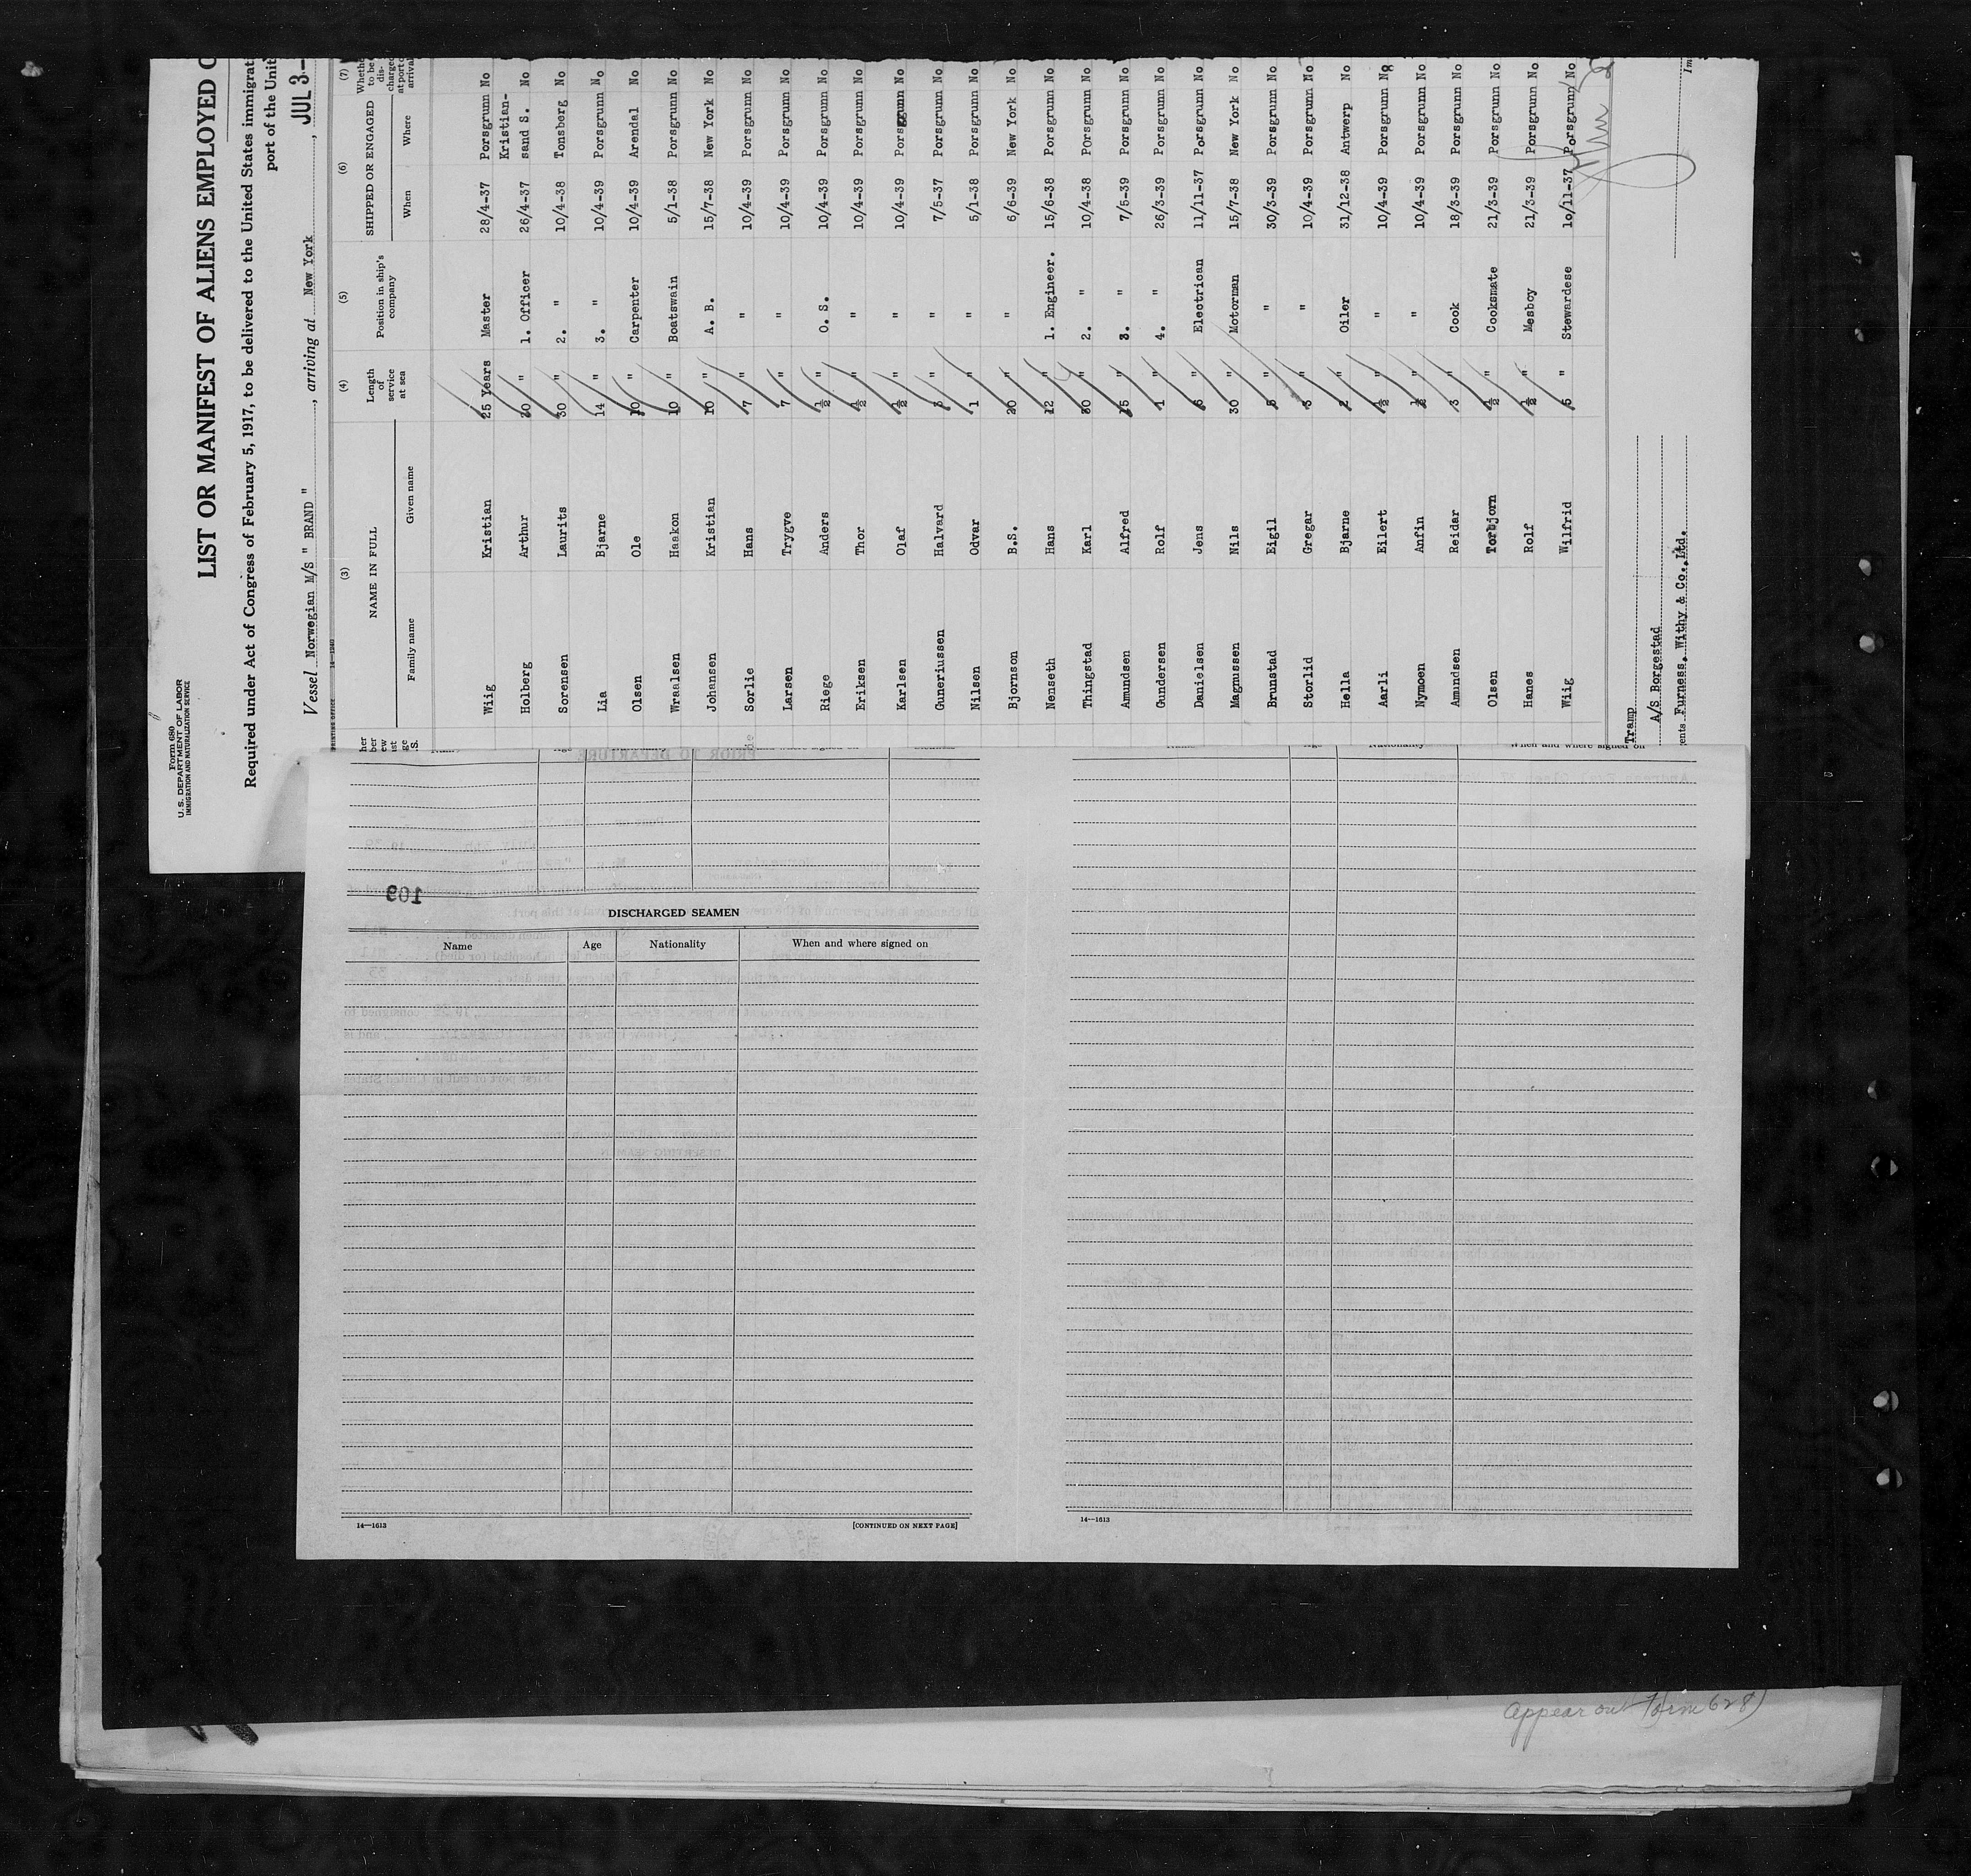 Form 680
U. S. DEPARTMENT OF LABOR
IMMIGRATION AND NATURALIZATION SERVICE
LIST OR MANIFEST OF ALIENS EMPLOYED
Required under Act of Congress of February 5, 1917, to be delivered to the United States
port of the
Vessel Norwegian M/S " BRAND ", arriving at New York, JUL 3-
(3) (4) (5) (6) (7)
NAME IN FULL Length of service at sea Position in ship's company SHIPPED OR ENGAGED to be dis- charged at port arrival
Family name Given name When Where
Wiig Kristian 25 Years Master 28/4-37 Porsgrunn No
Holberg Arthur 20 " 1. Officer 26/4-37 Kristian- sand S. No
Sorensen Laurits 30 " 2. " 10/4-38 Tonsberg No
Lia Bjarne 14 " 3. " 10/4-39 Porsgrunn No
Olsen Ole 10 " Carpenter 10/4-39 Arendal No
Wraalsen Haakon 10 " Boatswain 5/1-38 Porsgrunn No
Johansen Kristian 10 " A. B. 15/7-38 New York No
Sorlie Hans 7 " " 10/4-39 Porsgrunn No
Larsen Trygve 7 " " 10/4-39 Porsgrunn No
Riege Anders ½ " O. S. 10/4-39 Porsgrunn No
Eriksen Thor ½ " " 10/4-39 Porsgrunn No
Karlsen Olaf ½ " " 10/4-39 Porsgrunn No
Guneriussen Halvard 3 " " 7/5-37 Porsgrunn No
Nilsen Odvar 1 " " 5/1-38 Porsgrunn No
Bjornson B.S. 20 " " 6/6-39 New York No
Nenseth Hans 12 " 1. Engineer. 15/6-38 Porsgrunn No
Thingstad Karl 30 " 2. " 10/4-38 Porsgrunn No
Amundsen Alfred 15 " 3. " 7/5-39 Porsgrunn No
Gundersen Rolf 1 " 4. " 26/3-39 Porsgrunn No
Danielsen Jens 6 " Electrican 11/11-37 Porsgrunn No
Magnussen Nils 30 " Motorman 15/7-38 New York No
Brunstad Eigil 5 " " 30/3-39 Porsgrunn No
Storlid Gregar 3 " " 10/4-39 Porsgrunn No
Hella Bjarne 2 " Oiler 31/12-38 Antwerp No
Aarli Eilert ½ " " 10/4-39 Porsgrunn No
Nymoen Anfin ½ " " 10/4-39 Porsgrunn No
Amundsen Reidar 3 " Cook 18/3-39 Porsgrunn No
Olsen Torbjorn ½ " Cooksmate 21/3-39 Porsgrunn No
Hanes Rolf ½ " Mesboy 21/3-39 Porsgrunn No
Wiig Wilfrid 5 " Stewardese 10/11-37 Porsgrunn No
Tramp
A/S Borgestad
Furness, Withy & Co., Ltd.
109
DISCHARGED SEAMEN
Name Age Nationality When and where signed on
14—1613 [CONTINUED ON NEXT PAGE]
14—1613
appear on Form 628)